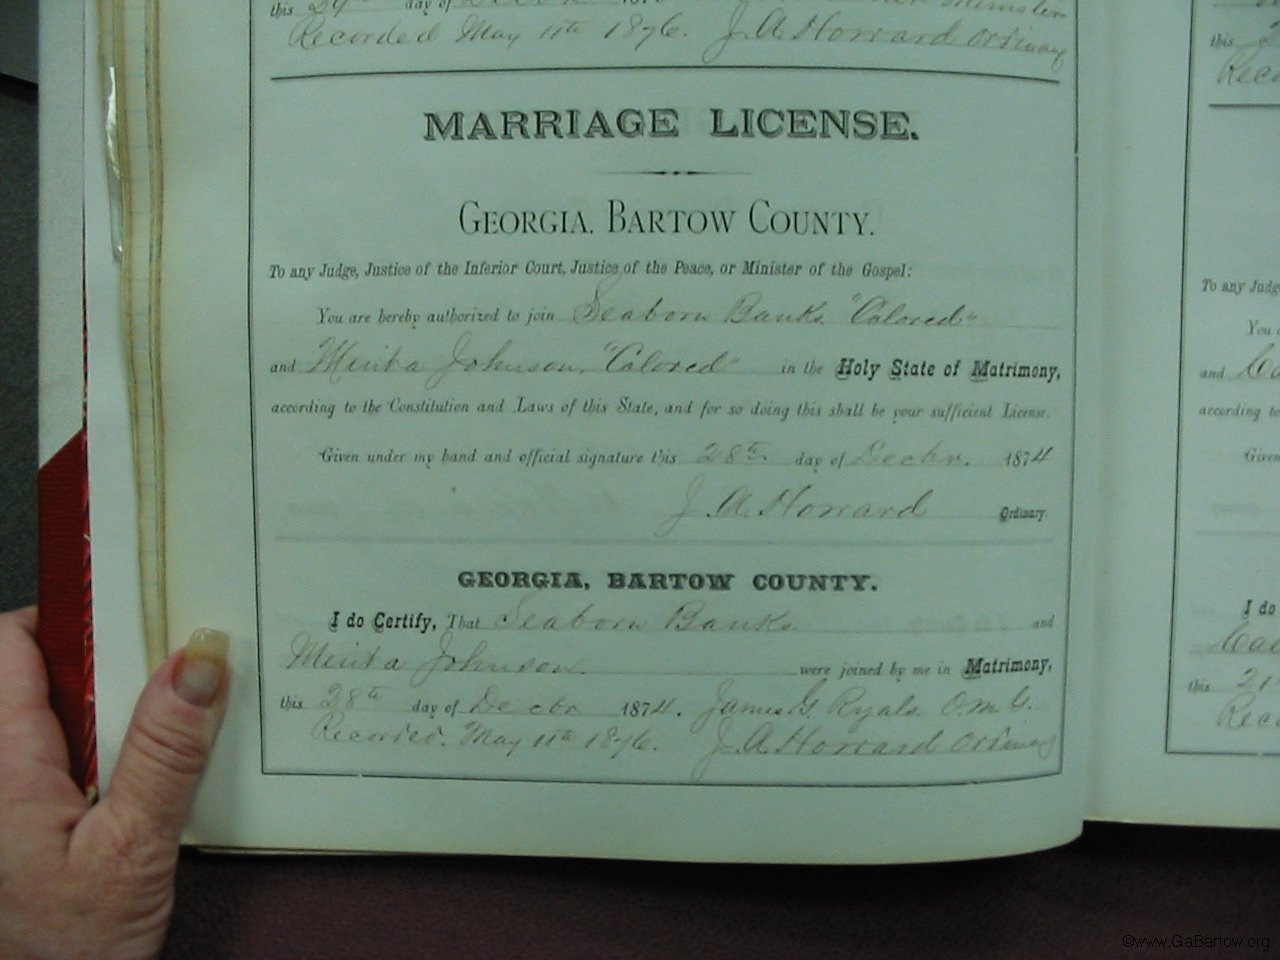 this 29th day of Decbr 187
Recorded May 11th 1876. J. A. Howard Ordinary
MARRIAGE LICENSE.
GEORGIA, BARTOW COUNTY.
To any Judge, Justice of the Inferior Court, Justice of the Peace, or Minister of the Gospel:
You are hereby authorized to join Seaborn Banks "Colored"
and Minta Johnson, "Colored" in the Holy State of Matrimony,
according to the Constitution and Laws of this State, and for so doing this shall be your sufficient License.
Given under my hand and official signature this 28th day of Decbr. 1874
J. A. Howard Ordinary.
GEORGIA, BARTOW COUNTY.
I do Certify, That Seaborn Banks and
Minta Johnson were joined by me in Matrimony,
this 28th day of Decbr 1874. James G. Ryals O.M.G.
Recorded. May 11th 1876. J. A. Howard Ordinary
this
Reco
To any Judg
You a
and
according to
Given
I do
this 21
Rec
©www.GaBartow.org